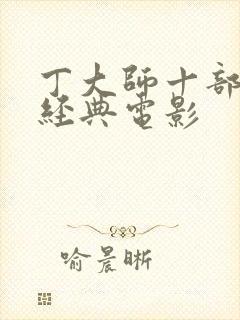 丁大師十部
經典電影
喻晨晰